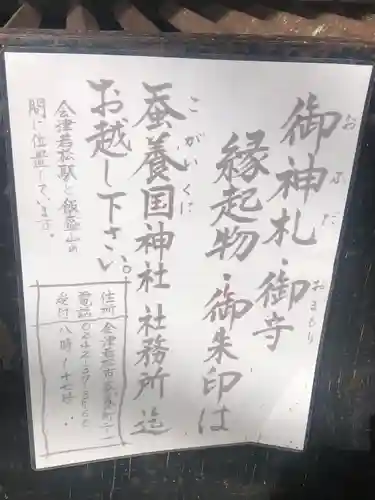 おふだ おまもり
御神札・御守
縁起物・御朱印は
こがいくに
蚕養国神社 社務所 迄
お越し下さい。
会津若松駅と飯盛山の
間に位置しています。
住所 会津若松市蚕養町二-一
電話
受付 八時~十七時